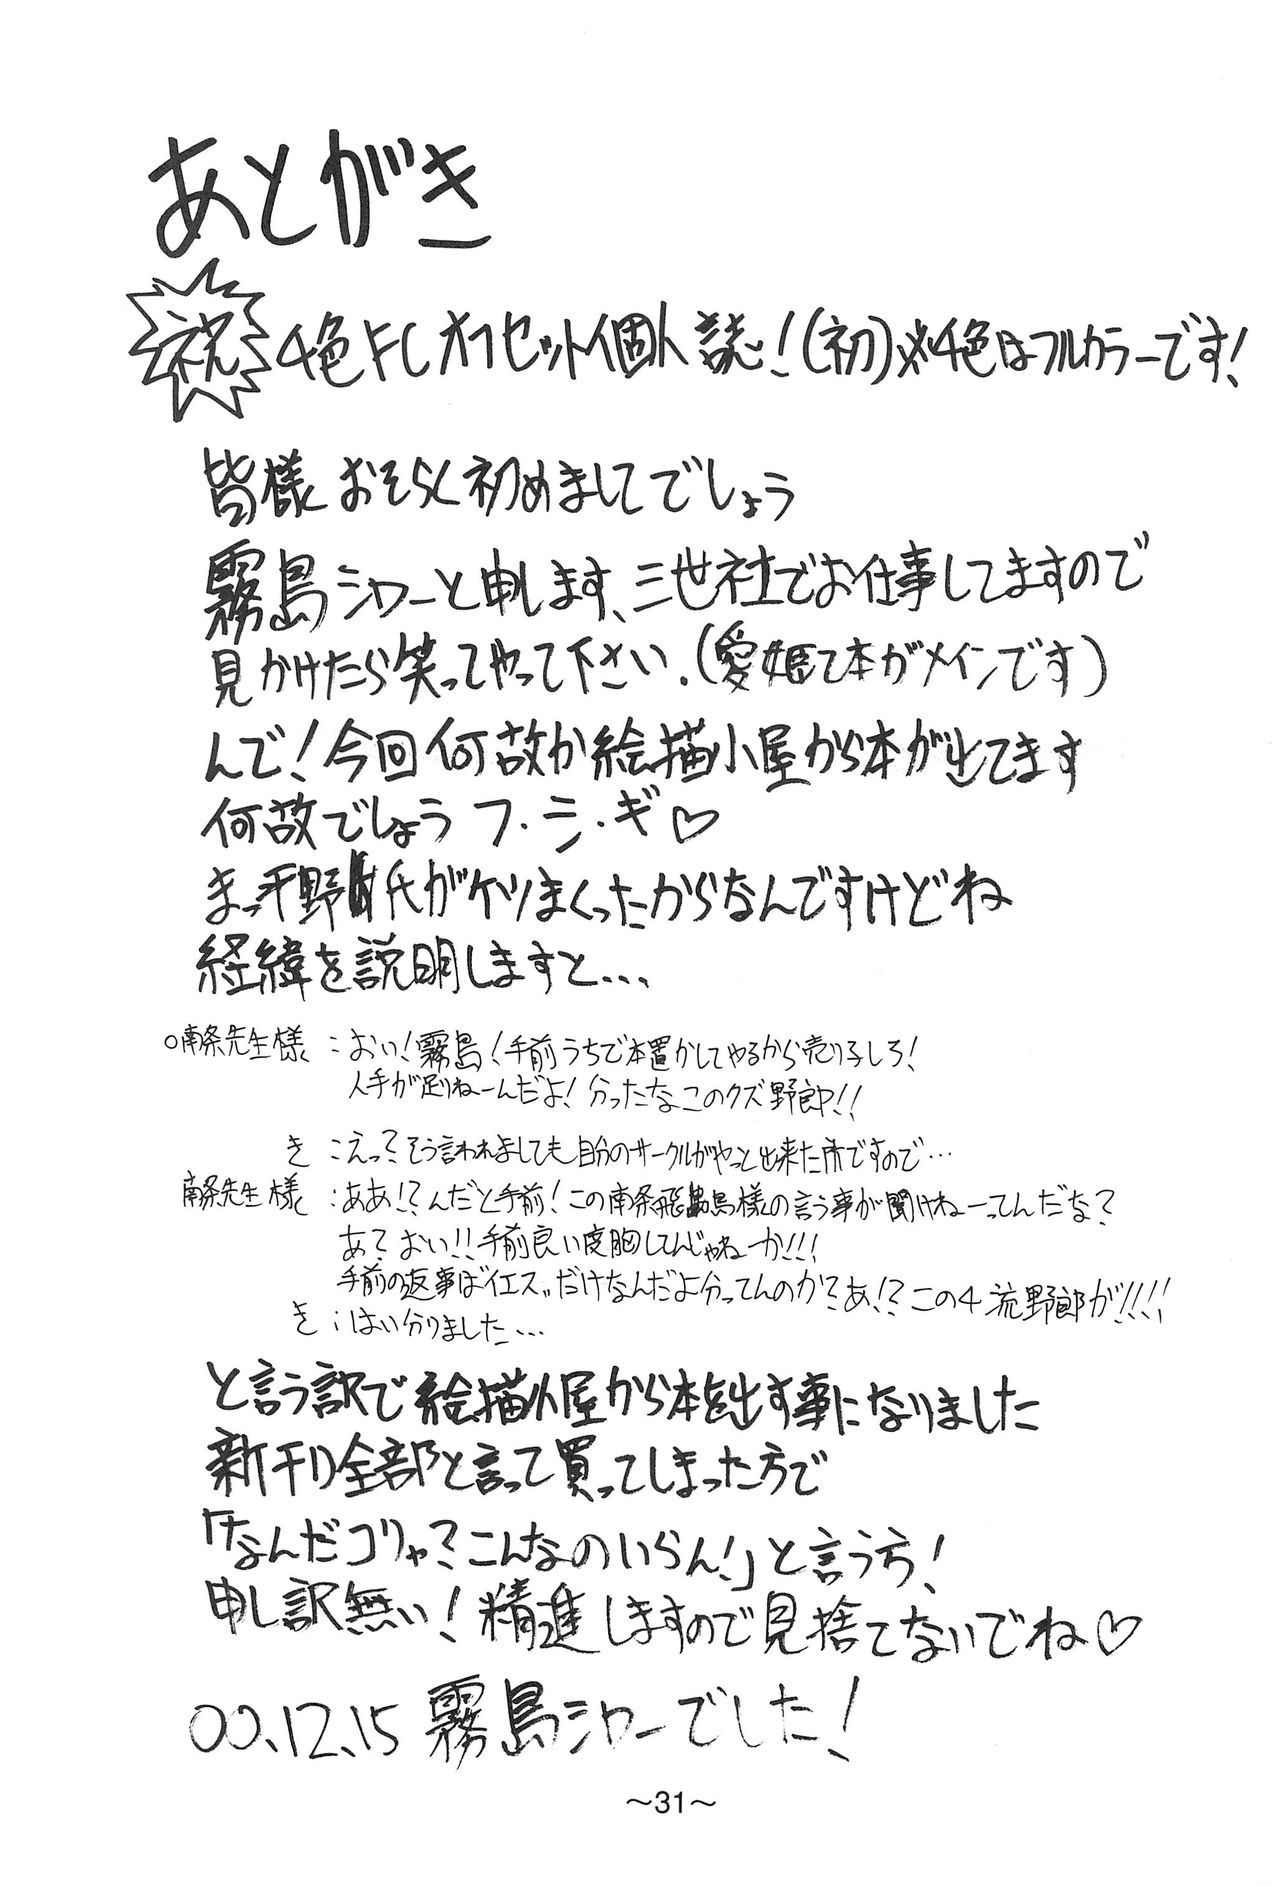 あとがき
祝 4色FCオフセット個人誌!(初)※4色はフルカラーです!
皆様おそらく初めましてでしょう
霧島シャワーと申します、三世社でお仕事してますので
見かけたら笑ってやって下さい.(愛姫て本がメインです)
んで!今回何故か絵描小屋から本が出てます
何故でしょうフ・シ・ギ♡
まっ平野氏がケツまくったからなんですけどね
経緯を説明しますと...
○南条先生様:おい!霧島!手前うちで本置かしてやるから売り子しろ!
人手が足りねーんだよ!分ったなこのクズ野郎!!
き:えっ?そう言われましても自分のサークルがやっと出来た所ですので…
南条先生様:ああ!?んだと手前!この南条飛鳥様の言う事が聞けねーってんだな?
あ?おい!!手前良い度胸してんじゃねーか!!!
手前の返事は"イエス"だけなんだよ分ってんのか?あ!?この4流野郎が!!!!
き:はい分りました...
と言う訳で絵描小屋から本を出す事になりました
新刊全部と言って買ってしまった方で
「なんだコリャ?こんなのいらん!」と言う方!
申し訳無い!精進しますので見捨てないでね♡
00.12.15霧島シャワーでした!
～31～